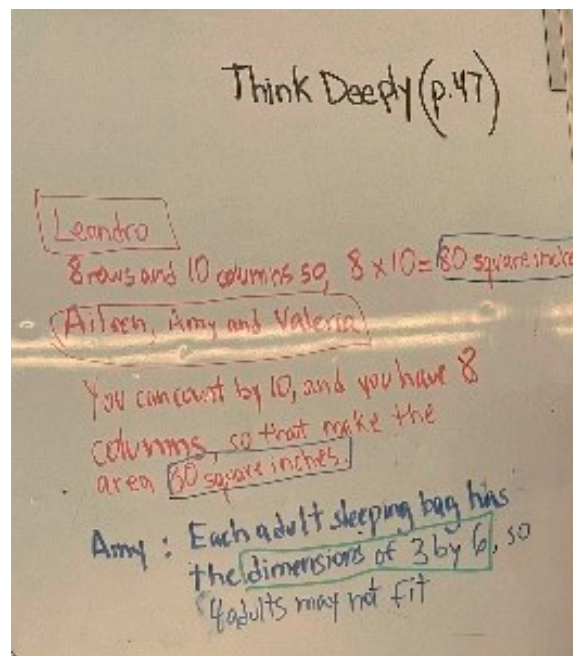 Think Deeply (p.47)
Leandro
8 rows and 10 columns so, 8 x 10 = 80 square inches
Aileen, Amy and Valeria
You can count by 10, and you have 8
columns, so that make the
area 80 square inches.
Amy : Each adult sleeping bag has
the dimensions of 3 by 6, so
4 adults may not fit